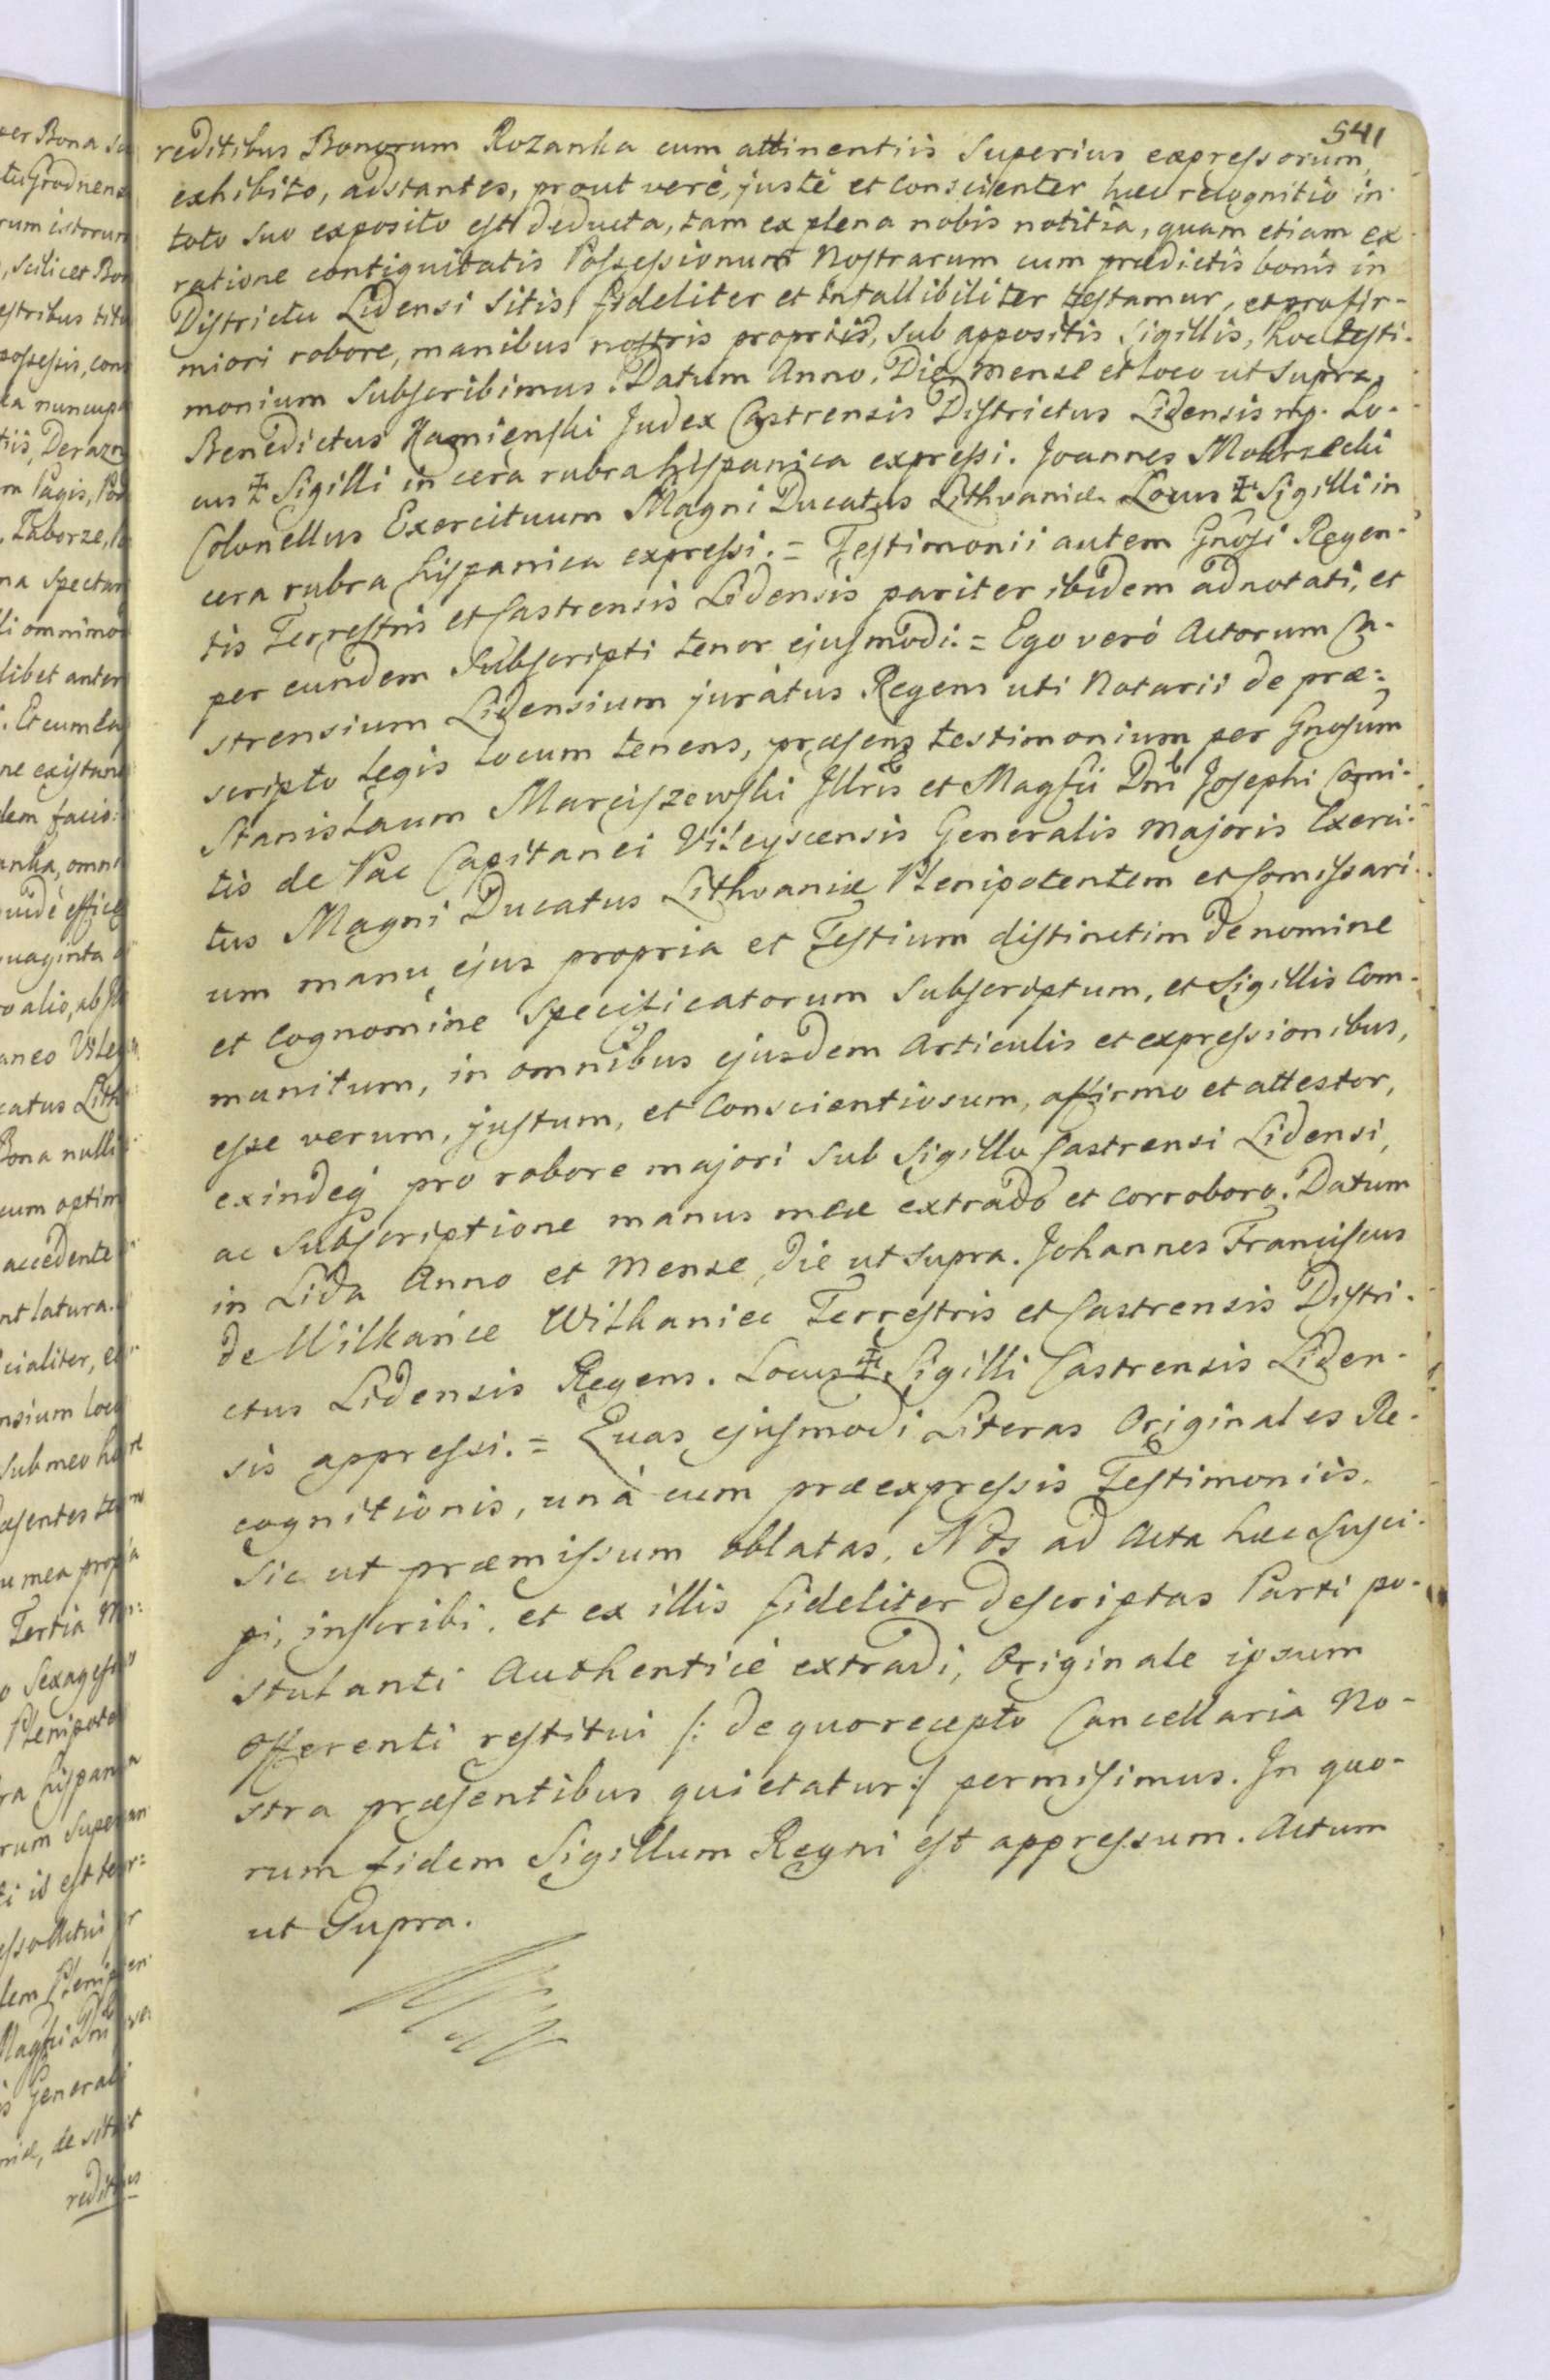 541
reditibus Bonorum Rozanka cum attinentiis Superius expressorum,
exhibito, adstantes, prout verè, justè et Conscienter hæc recognitio in
toto suo exposito est deducta, tam ex plena nobis notitia, quam etiam ex
ratione contiguitatis Possessionum Nostrarum cum prædictis bonis in
Districtu Lidensi Sitis, fideliter et infallibiliter testamur, et pro fir-
miori robore, manibus nostris propriis, sub appositis Sigillis, hoc testi-
monium Subscribimus. Datum Anno, Die, Mense et loco ut Supra.
Benedictus Kamienski Judex Castrensis Districtus Lidensis mp. Lo-
cus ‡ Sigilli in cera rubra hispanica expressi. Joannes Mokrzecki
Colonellus Exercituum Magni Ducatus Lithvaniæ. Locus ‡ Sigilli in
cera rubra hispanica expressi. = Testimonii autem Gnosi Regen-
tis Terrestris et Castrensis Lidensis pariter ibidem adnotati, et
per eundem Subscripti tenor ejusmodi. = Ego verò Actorum Ca-
strensium Lidensium juratus Regens uti Notarii de præ-
scripto Legis locum tenens, præsens testimonium per Gnosum
Stanislaum Marciszewski Jllris et Magfii Dni Josephi Comi-
tis de Pac Capitanei Vileyscensis Generalis Majoris Exerci-
tus Magni Ducatus Lithvaniæ Plenipotentem et Comissari-
um manu ejus propria et Testium distinctim de nomine
et Cognomine Specificatorum Subscriptum, et Sigillis Com-
munitum, in omnibus ejusdem Articulis et expressionibus,
esse verum, justum, et Conscientiosum, affirmo et attestor,
exindeq pro robore majori Sub Sigillo Castrensi Lidensi,
ac Subscriptione manus meæ extrado et Corroboro. Datum
in Lida Anno et Mense, die ut Supra. Johannes Franciscus
de Wilkanice Wilkaniec Terrestris et Castrensis Distri-
ctus Lidensis Regens. Locus ‡ Sigilli Castrensis Liden-
sis appressi. = Quas ejusmodi Literas Originales Re-
cognitionis, unà cum præexpressis Testimoniis,
Sic ut præmissum oblatas, Nos ad Acta hæc Susci-
pi, inscribi, et ex illis fideliter descriptas Parti po-
stulanti Authenticè extradi, Originale ipsum
Offerenti restitui /: de quo recepto Cancellaria No-
stra præsentibus quietatur :/ permisimus. In quo-
rum fidem Sigillum Regni est appressum. Actum
ut Supra.